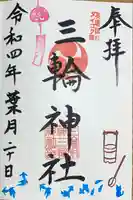 奉拝
三輪神社
令和四年葉月二十日